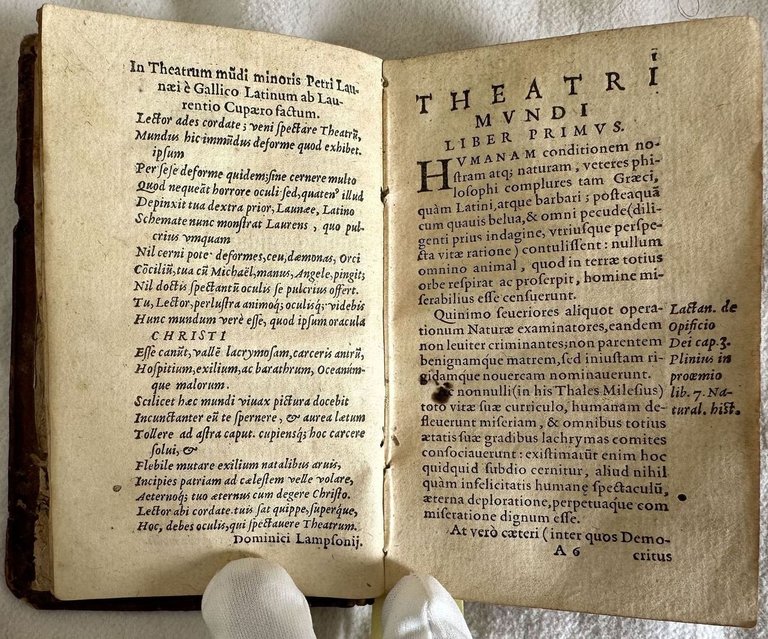 In Theatrum mũdi minoris Petri Lau-
næi è Gallico Latinum ab Lau-
rentio Cupæro factum.
Lector ades cordate; veni spectare Theatrũ,
Mundus hic immũdus deforme quod exhibet.
ipsum
Per sese deforme quidem; sine cernere multo
Quod nequeãt horrore oculi sed, quatenꝰ illud
Depinxit tua dextra prior, Launæe, Latino
Schemate nunc monstrat Laurens, quo pul-
crius vmquam
Nil cerni pote: deformes, ceu, dæmonas, Orci
Cõciliũ, tua cũ Michaël, manus, Angele, pingit;
Nil doctis spectantũ oculis se pulcrius offert.
Tu, Lector, perlustra animoq; oculisq; videbis
Hunc mundum verè esse, quod ipsum oracula
CHRISTI
Esse canũt, vallẽ lacrymosam, carceris antrũ,
Hospitium, exilium, ac barathrum, Oceanum-
que malorum.
Scilicet hæc mundi viuax pictura docebit
Incunctanter eũ te spernere, & aurea lætum
Tollere ad astra caput. cupiensq; hoc carcere
solui, &
Flebile mutare exilium natalibus aruis,
Incipies patriam ad cælestem velle volare,
Aeternoq; tuo æternus cum degere Christo.
Lector abi cordate. tuis sat quippe, superque,
Hoc, debes oculis, qui spectauere Theatrum.
Dominici Lampsonij.
THEATRI
MVNDI
LIBER PRIMVS.
HVMANAM conditionem no-
stram atq; naturam, veteres phi-
losophi complures tam Græci,
quàm Latini, atque barbari; posteaquã
cum quauis belua, & omni pecude (dili
genti prius indagine, vtriusque perspe-
cta vitæ ratione) contulissent: nullum
omnino animal, quod in terræ totius
orbe respirat ac proserpit, homine mi-
serabilius esse censuerunt.
Quinimo seueriores aliquot opera-
tionum Naturæ examinatores, eandem
non leuiter criminantes; non parentem
benignamque matrem, sed iniustam ri-
gidamque nouercam nominauerunt.
nonnulli (in his Thales Milesius)
toto vitæ suæ curriculo, humanam de-
fleuerunt miseriam, & omnibus totius
ætatis suæ gradibus lachrymas comites
consociauerunt: existimarũt enim hoc
quidquid subdio cernitur, aliud nihil
quàm infelicitatis humanę spectaculũ,
æterna deploratione, perpetuaque com
miseratione dignum esse.
At verò cæteri (inter quos Demo-
A 6 critus
Lactan. de
Opificio
Dei cap. 3.
Plinius in
proœmio
lib. 7. Na-
tural. hist.